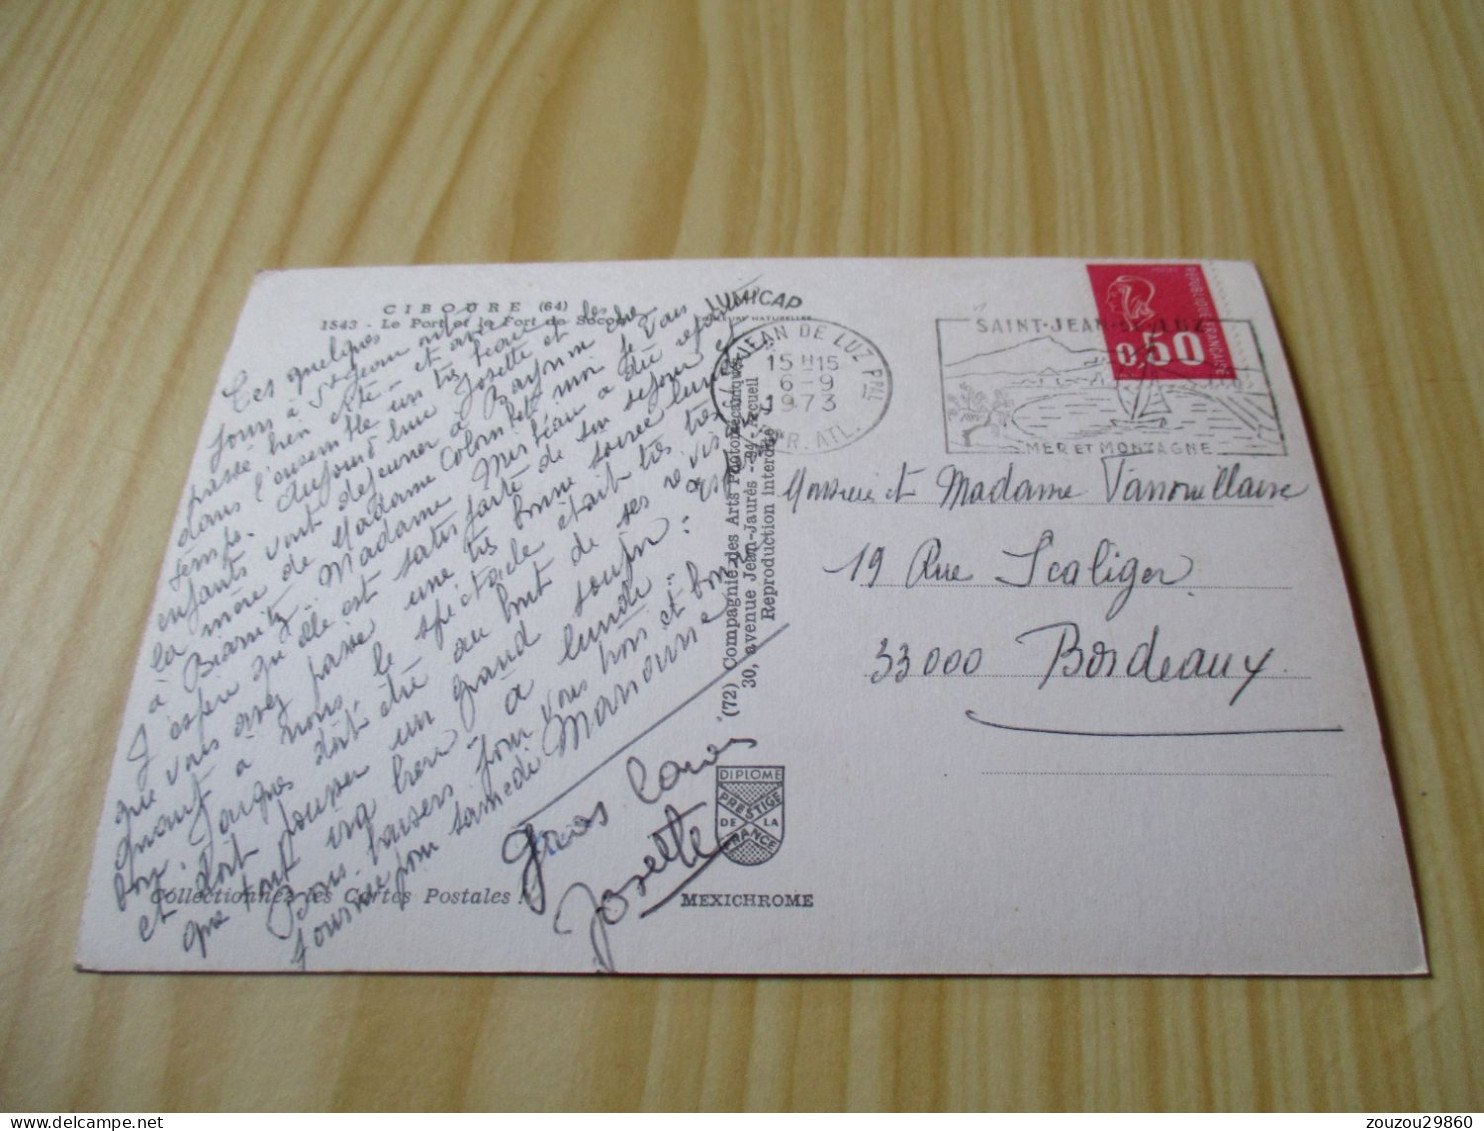 CIBOURE (64)
1543 - Le Port et le Fort de Socoa
LUMICAP
Ces quelques
jours à
passé bien vite et
dans l'ensemble un très beau
temps. Aujourd'hui Josette et
enfants vont déjeuner à Bayonne chez
la mère de Madame Colombet, moi je vais
à Biarritz. Madame
J'espère qu'elle est satisfaite de son séjour et
que vous avez passé une très bonne soirée lundi
quant à nous, le spectacle était très très
bon. Jacques doit être au bout de ses
et doit pousser un grand soupir :
que tout ira bien à lundi
Bons baisers pour vous trois et bonne
journée pour samedi Manoune
Gros
Josette
Collectionnez les Cartes Postales !
(72) Compagnie des Arts Photomécaniques
30, avenue Jean-Jaurès - 94 - Arcueil
Reproduction interdite
DIPLOME
PRESTIGE
DE LA
FRANCE
MEXICHROME
ST JEAN DE LUZ PPAL
15 H 15
6 - 9
1973
PYR. ATL.
SAINT-JEAN-DE-LUZ
MER ET MONTAGNE
0,50
REPUBLIQUE FRANÇAISE
Monsieur et Madame Vanouillaire
19 Rue Scaliger
33000 Bordeaux
zouzou29860